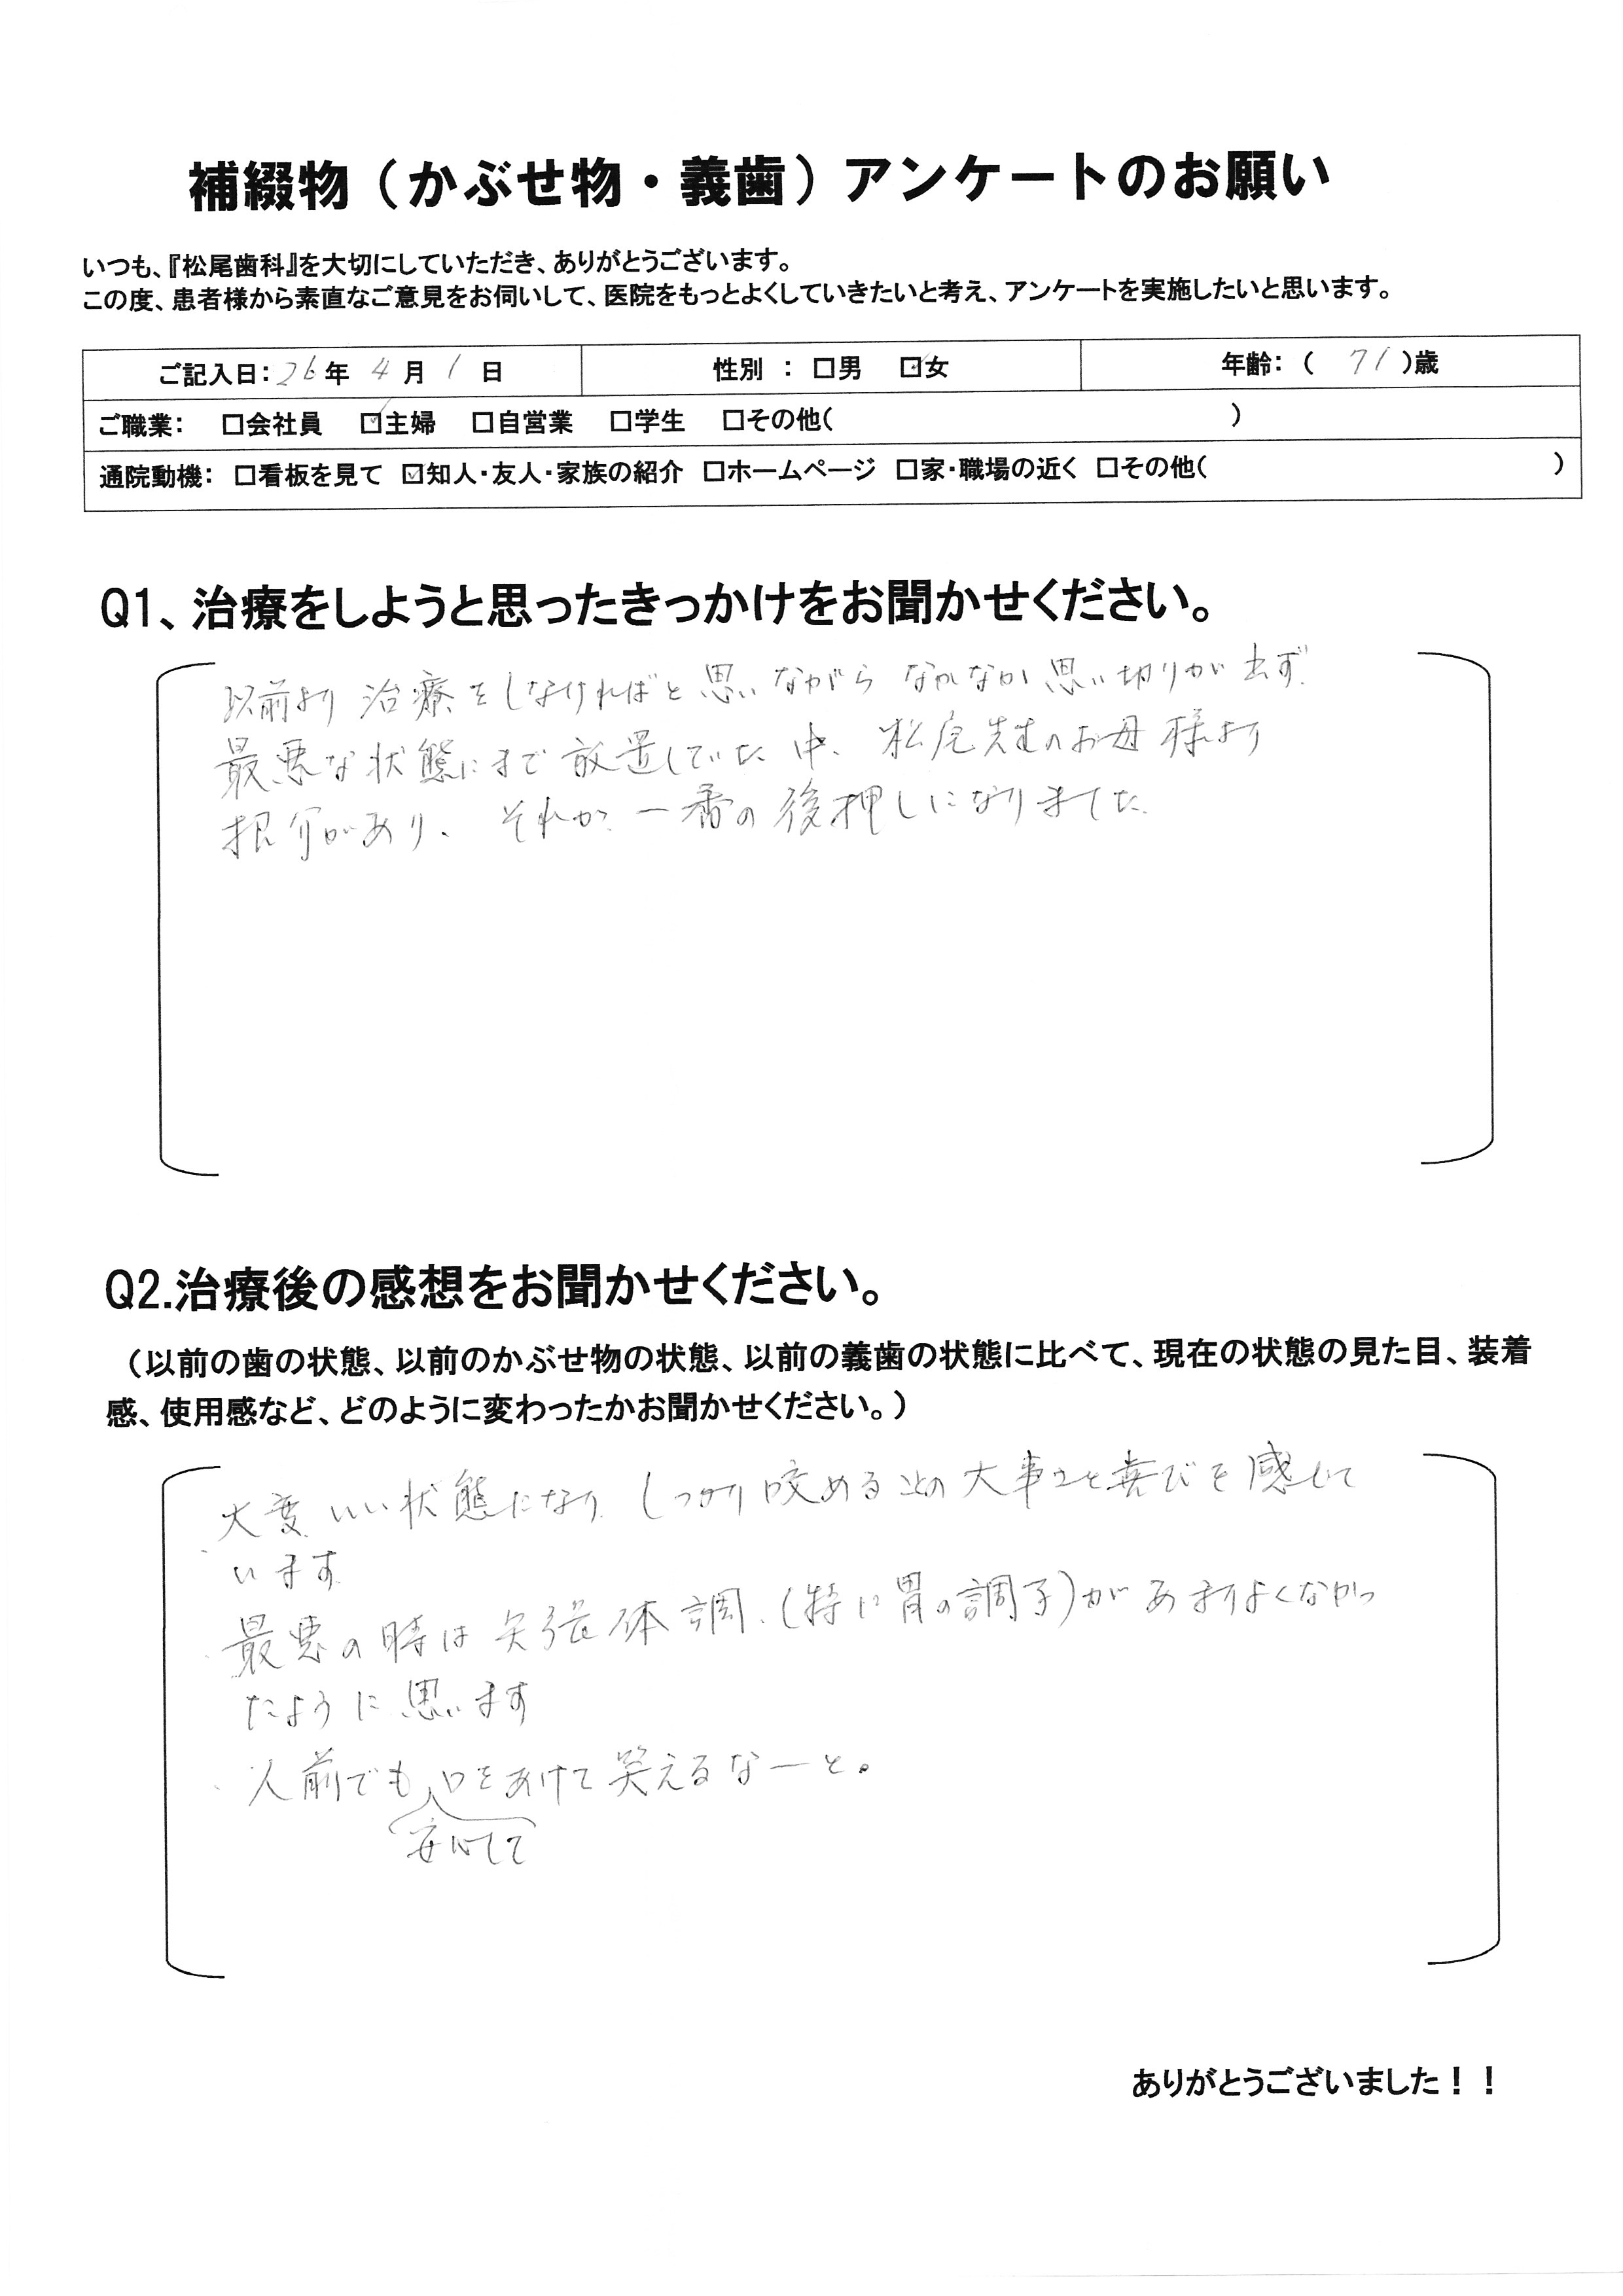 補綴物（かぶせ物・義歯）アンケートのお願い
いつも、『松尾歯科』を大切にしていただき、ありがとうございます。
この度、患者様から素直なご意見をお伺いして、医院をもっとよくしていきたいと考え、アンケートを実施したいと思います。
ご記入日：26年 4月 1日 性別 ： □男 ☑女 年齢：（ 71 ）歳
ご職業： □会社員 ☑主婦 □自営業 □学生 □その他（ ）
通院動機： □看板を見て ☑知人・友人・家族の紹介 □ホームページ □家・職場の近く □その他（ ）
Q1、治療をしようと思ったきっかけをお聞かせください。
以前より 治療をしなければと思いながら なかなか思い切りが出ず、
最悪な状態にまで放置していた中、松尾先生のお母様より
紹介があり、それが一番の後押しになりました。
Q2.治療後の感想をお聞かせください。
（以前の歯の状態、以前のかぶせ物の状態、以前の義歯の状態に比べて、現在の状態の見た目、装着
感、使用感など、どのように変わったかお聞かせください。）
・大変いい状態になり、しっかり咬めることの大事さと喜びを感じて
います
・最悪の時は矢張体調、（特に胃の調子）があまりよくなかっ
たように思います
・人前でも、口をあけて笑えるなーと。
安心して
ありがとうございました！！